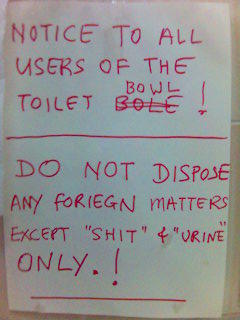 NOTICE TO ALL
USERS OF THE
BOWL
TOILET BOLE !
DO NOT DISPOSE
ANY FORIEGN MATTERS
EXCEPT "SHIT" & "URINE"
ONLY. !